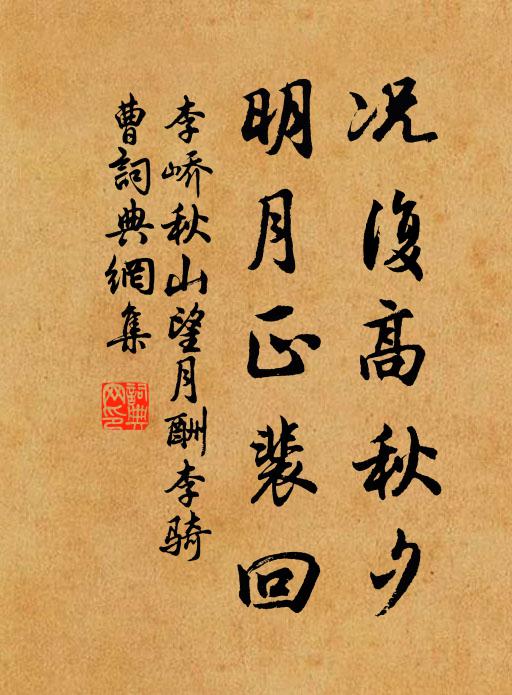 况復高秋夕
明月正裴回
李嶠秋山望月酬李骑
曹詞典網集
詞典网印